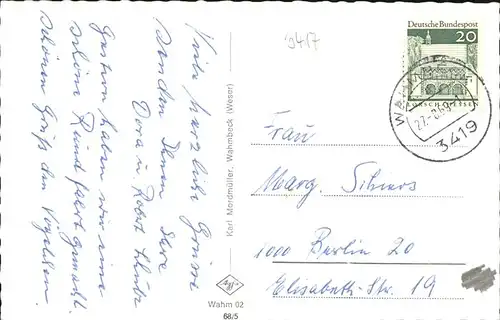 Viele herzliche Grüsse
senden Ihnen Ihre
Dora u. Robert
Gestern haben wir eine
schöne Rundfahrt gemacht.
schönen Gruß den Vögelchen.
Karl Mordmüller, Wahmbeck (Weser)
Wahm 02
68/5
3417
Deutsche Bundespost
20
LORSCH/HESSEN
3419
Frau
Marg. Schiers
1000 Berlin 20
Elisabeth-Str. 19